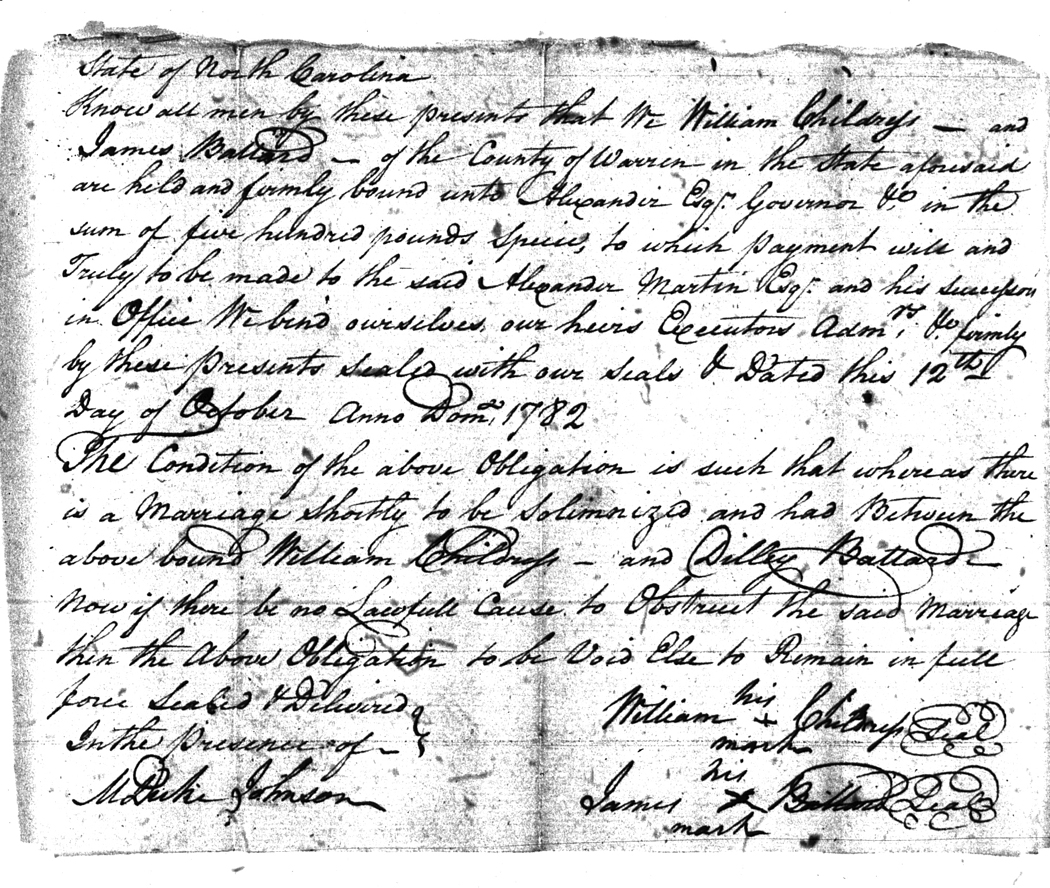 State of North Carolina
Know all men by these presents that We William Childress — and
James Ballard — of the County of Warren in the State aforesaid
are held and firmly bound unto Alexander Esqr. Governor &c in the
sum of five hundred pounds Specie, to which payment will and
Truly to be made to the said Alexander Martin Esqr. and his successors
in Office We bind ourselves, our heirs Executors Admrs, &c. firmly
by these presents sealed with our seals & Dated this 12th
Day of October Anno Dom. 1782
The Condition of the above Obligation is such that whereas there
is a Marriage shortly to be Solemnized and had Between the
above bound William Childress — and Dilley Ballard
Now if there be no Lawfull Cause to Obstruct the said Marriage
then the Above Obligation to be Void Else to Remain in full
force Sealed & Delivered
In the Presence of —
William his + mark Childress Seal
James his x mark Ballard Seal
Johnson